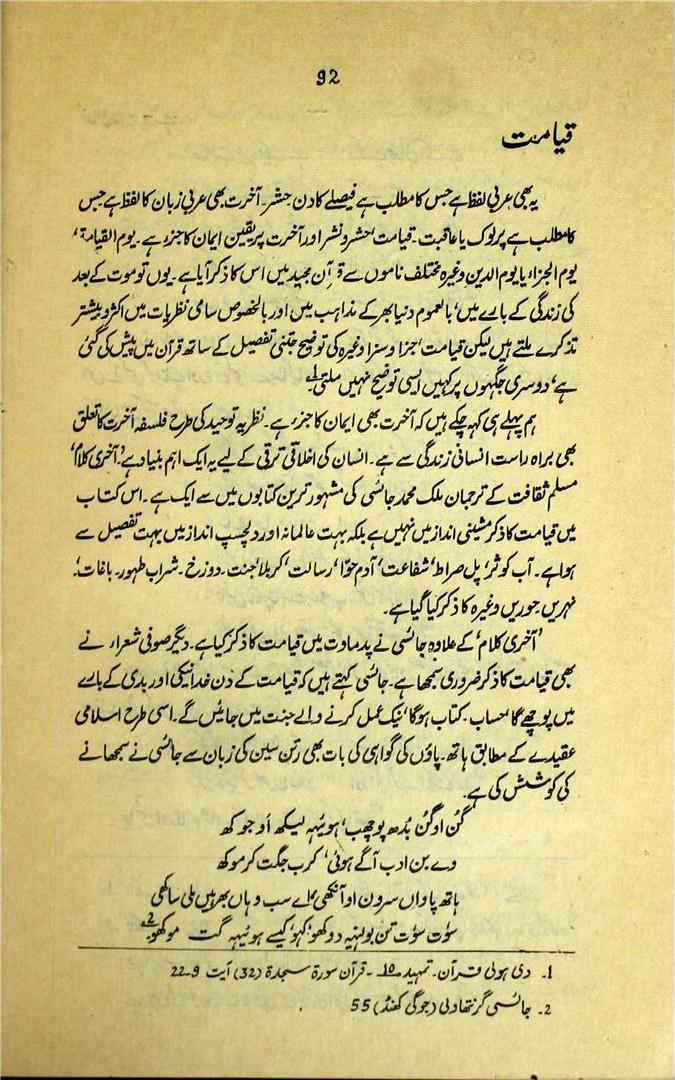 92
قیامت
یہ بھی عربی لفظ ہے جس کا مطلب ہے فیصلے کا دن حشر۔ آخرت بھی عربی زبان کا لفظ ہے جس
کا مطلب ہے پرلوک یا عاقبت۔ قیامت‘ حشر و نشر اور آخرت پر یقین ایمان کا جزء ہے۔ یوم القیامۃ‘
یوم الجزاء یا یوم الدین وغیرہ مختلف ناموں سے قرآن مجید میں اس کا ذکر آیا ہے۔ یوں تو موت کے بعد
کی زندگی کے بارے میں‘ بالعموم دنیا بھر کے مذاہب میں اور بالخصوص سامی نظریات میں اکثر و بیشتر
تذکرے ملتے ہیں لیکن قیامت‘ جزا و سزا وغیرہ کی توضیح جتنی تفصیل کے ساتھ قرآن میں پیش کی گئی
ہے‘ دوسری جگہوں پر کہیں ایسی توضیح نہیں ملتی۔1
ہم پہلے ہی کہہ چکے ہیں کہ آخرت بھی ایمان کا جزء ہے۔ نظریہ توحید کی طرح فلسفہ آخرت کا تعلق
بھی براہ راست انسانی زندگی سے ہے۔ انسان کی اخلاقی ترقی کے لیے یہ ایک اہم بنیاد ہے‘ آخری کلام‘
مسلم ثقافت کے ترجمان ملک محمد جائسی کی مشہور ترین کتابوں میں سے ایک ہے۔ اس کتاب
میں قیامت کا ذکر مشینی انداز میں نہیں ہے بلکہ بہت عالمانہ اور دلچسپ انداز میں بہت تفصیل سے
ہوا ہے۔ آب کوثر‘ پل صراط‘ شفاعت‘ آدم حوّا‘ رسالت‘ کربلا‘ جنت۔ دوزخ۔ شراب طہور۔ باغات‘
نہریں۔ حوریں وغیرہ کا ذکر کیا گیا ہے۔
’آخری کلام‘ کے علاوہ جائسی نے پدماوت میں قیامت کا ذکر کیا ہے۔ دیگر صوفی شعراء نے
بھی قیامت کا ذکر ضروری سمجھا ہے۔ جائسی کہتے ہیں کہ قیامت کے دن خدا نیکی اور بدی کے بارے
میں پوچھے گا‘ حساب۔ کتاب ہوگا‘ نیک عمل کرنے والے جنت میں جائیں گے۔ اسی طرح اسلامی
عقیدے کے مطابق ہاتھ۔ پاؤں کی گواہی کی بات بھی رتن سین کی زبان سے جائسی نے سمجھانے
کی کوشش کی ہے۔
گُن اوگُن بُدھ پوچھب‘ ہوئیہہ لیکھ اَو جوکھ
وے بن ادب آگے ہوئی‘ کرب جگت کر موکھ
ہاتھ پاواں سرون او آنکھی‘ اے سب وہاں بھرہیں ملی ساکھی
سوت سوت تن بولہیہ دوکھو‘ کہو‘ کیسے ہوئیہہ گت موکھو2
1۔ دی ہولی قرآن۔ تمہید 10 ۔ قرآن سورۃ سجدۃ (32) آیت 9-22
2۔ جائسی گرنتھاولی (جوگی کھنڈ) 55